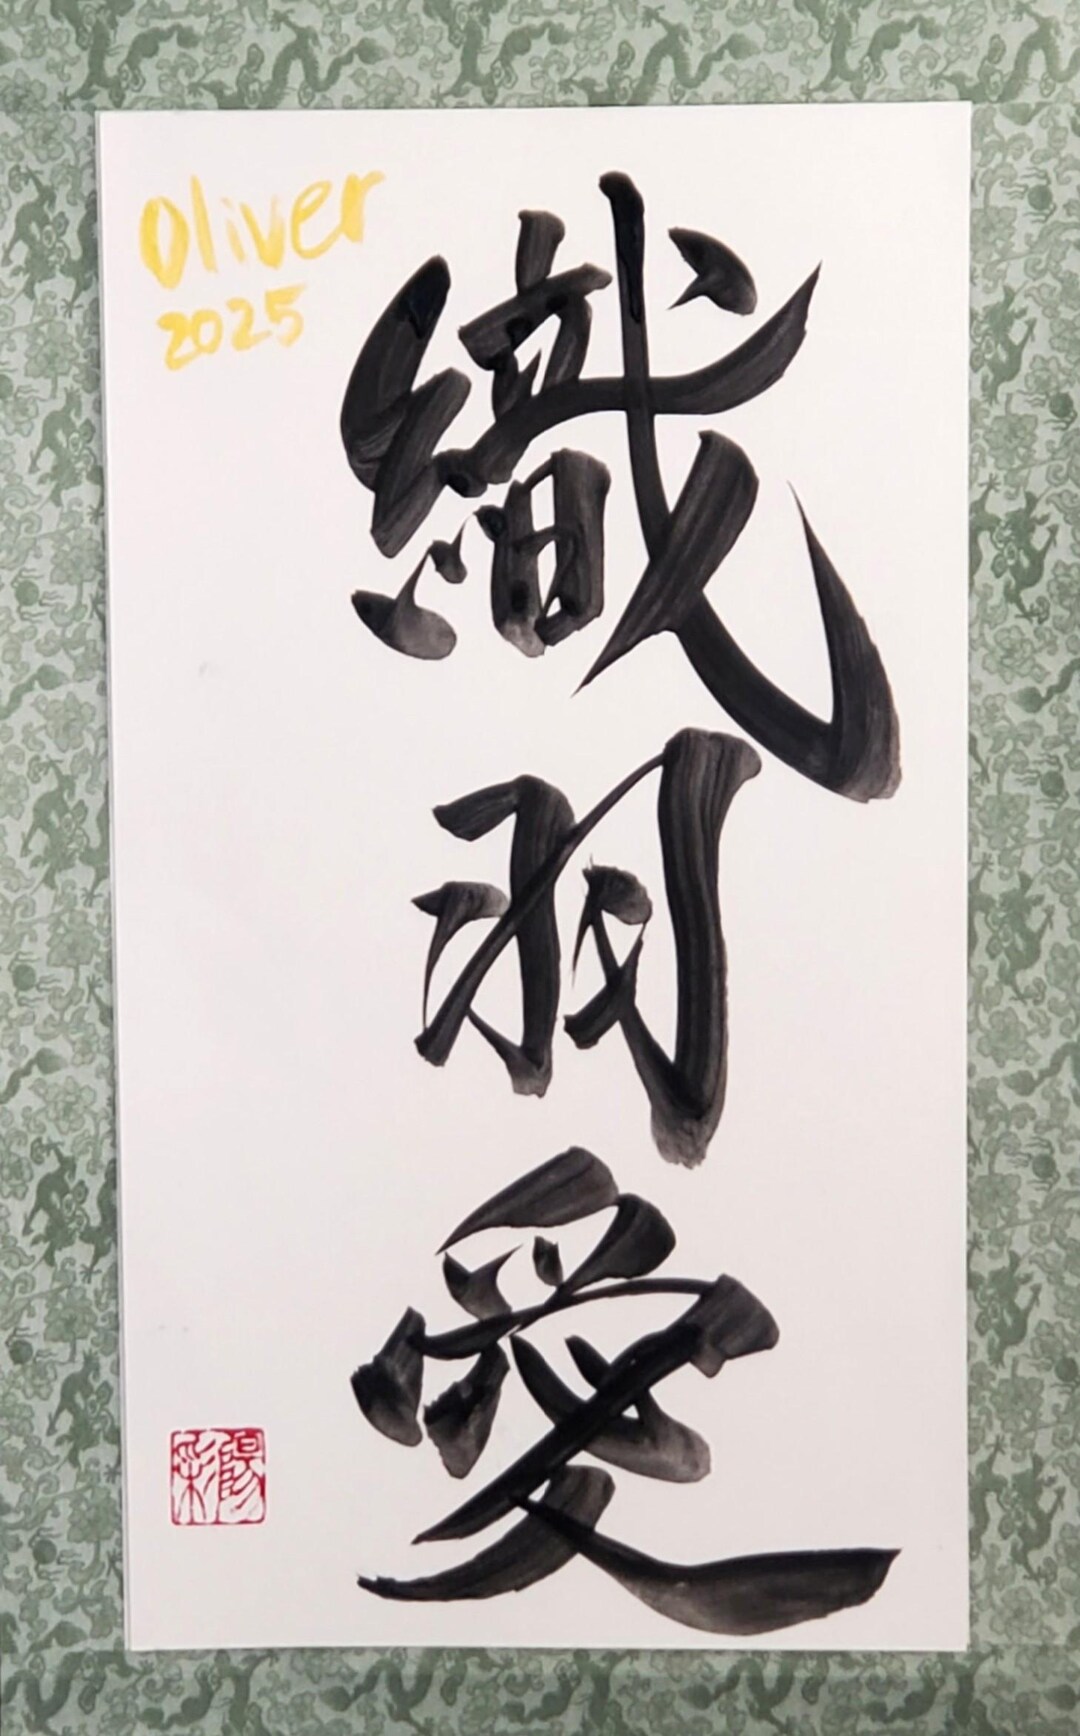 Oliver
2025
織羽愛
陽彩